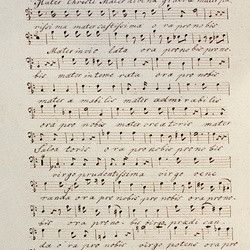 Mater Christi Mater divinae gratiae mater pu
rissima mater castissima ora pro nobis
Mater invio lata ora pro nobis pro no
bis mater inteme rata ora pro nobis
mater a mabilis mater admi rabilis
ora pro nobis mater creatoris mater
Salva toris ora pro nobis pro nobis
virgo prudentissima virgo vene
randa ora pro nobis pro nobis ora pro no
bis ora pro no bis virgo prae di can
da o ra pro nobis virgo potens ora pro